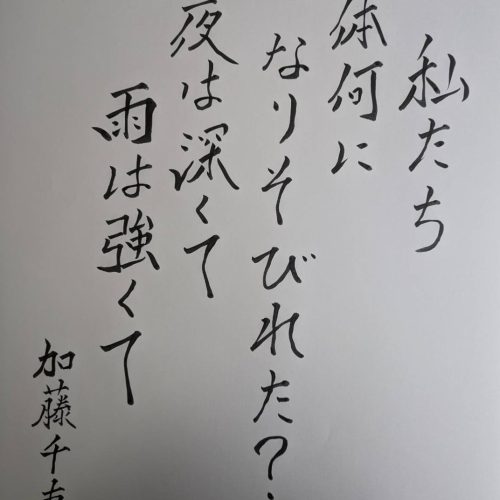 私たち
体何に
なりそびれた？
夜は深くて
雨は強くて
加藤千